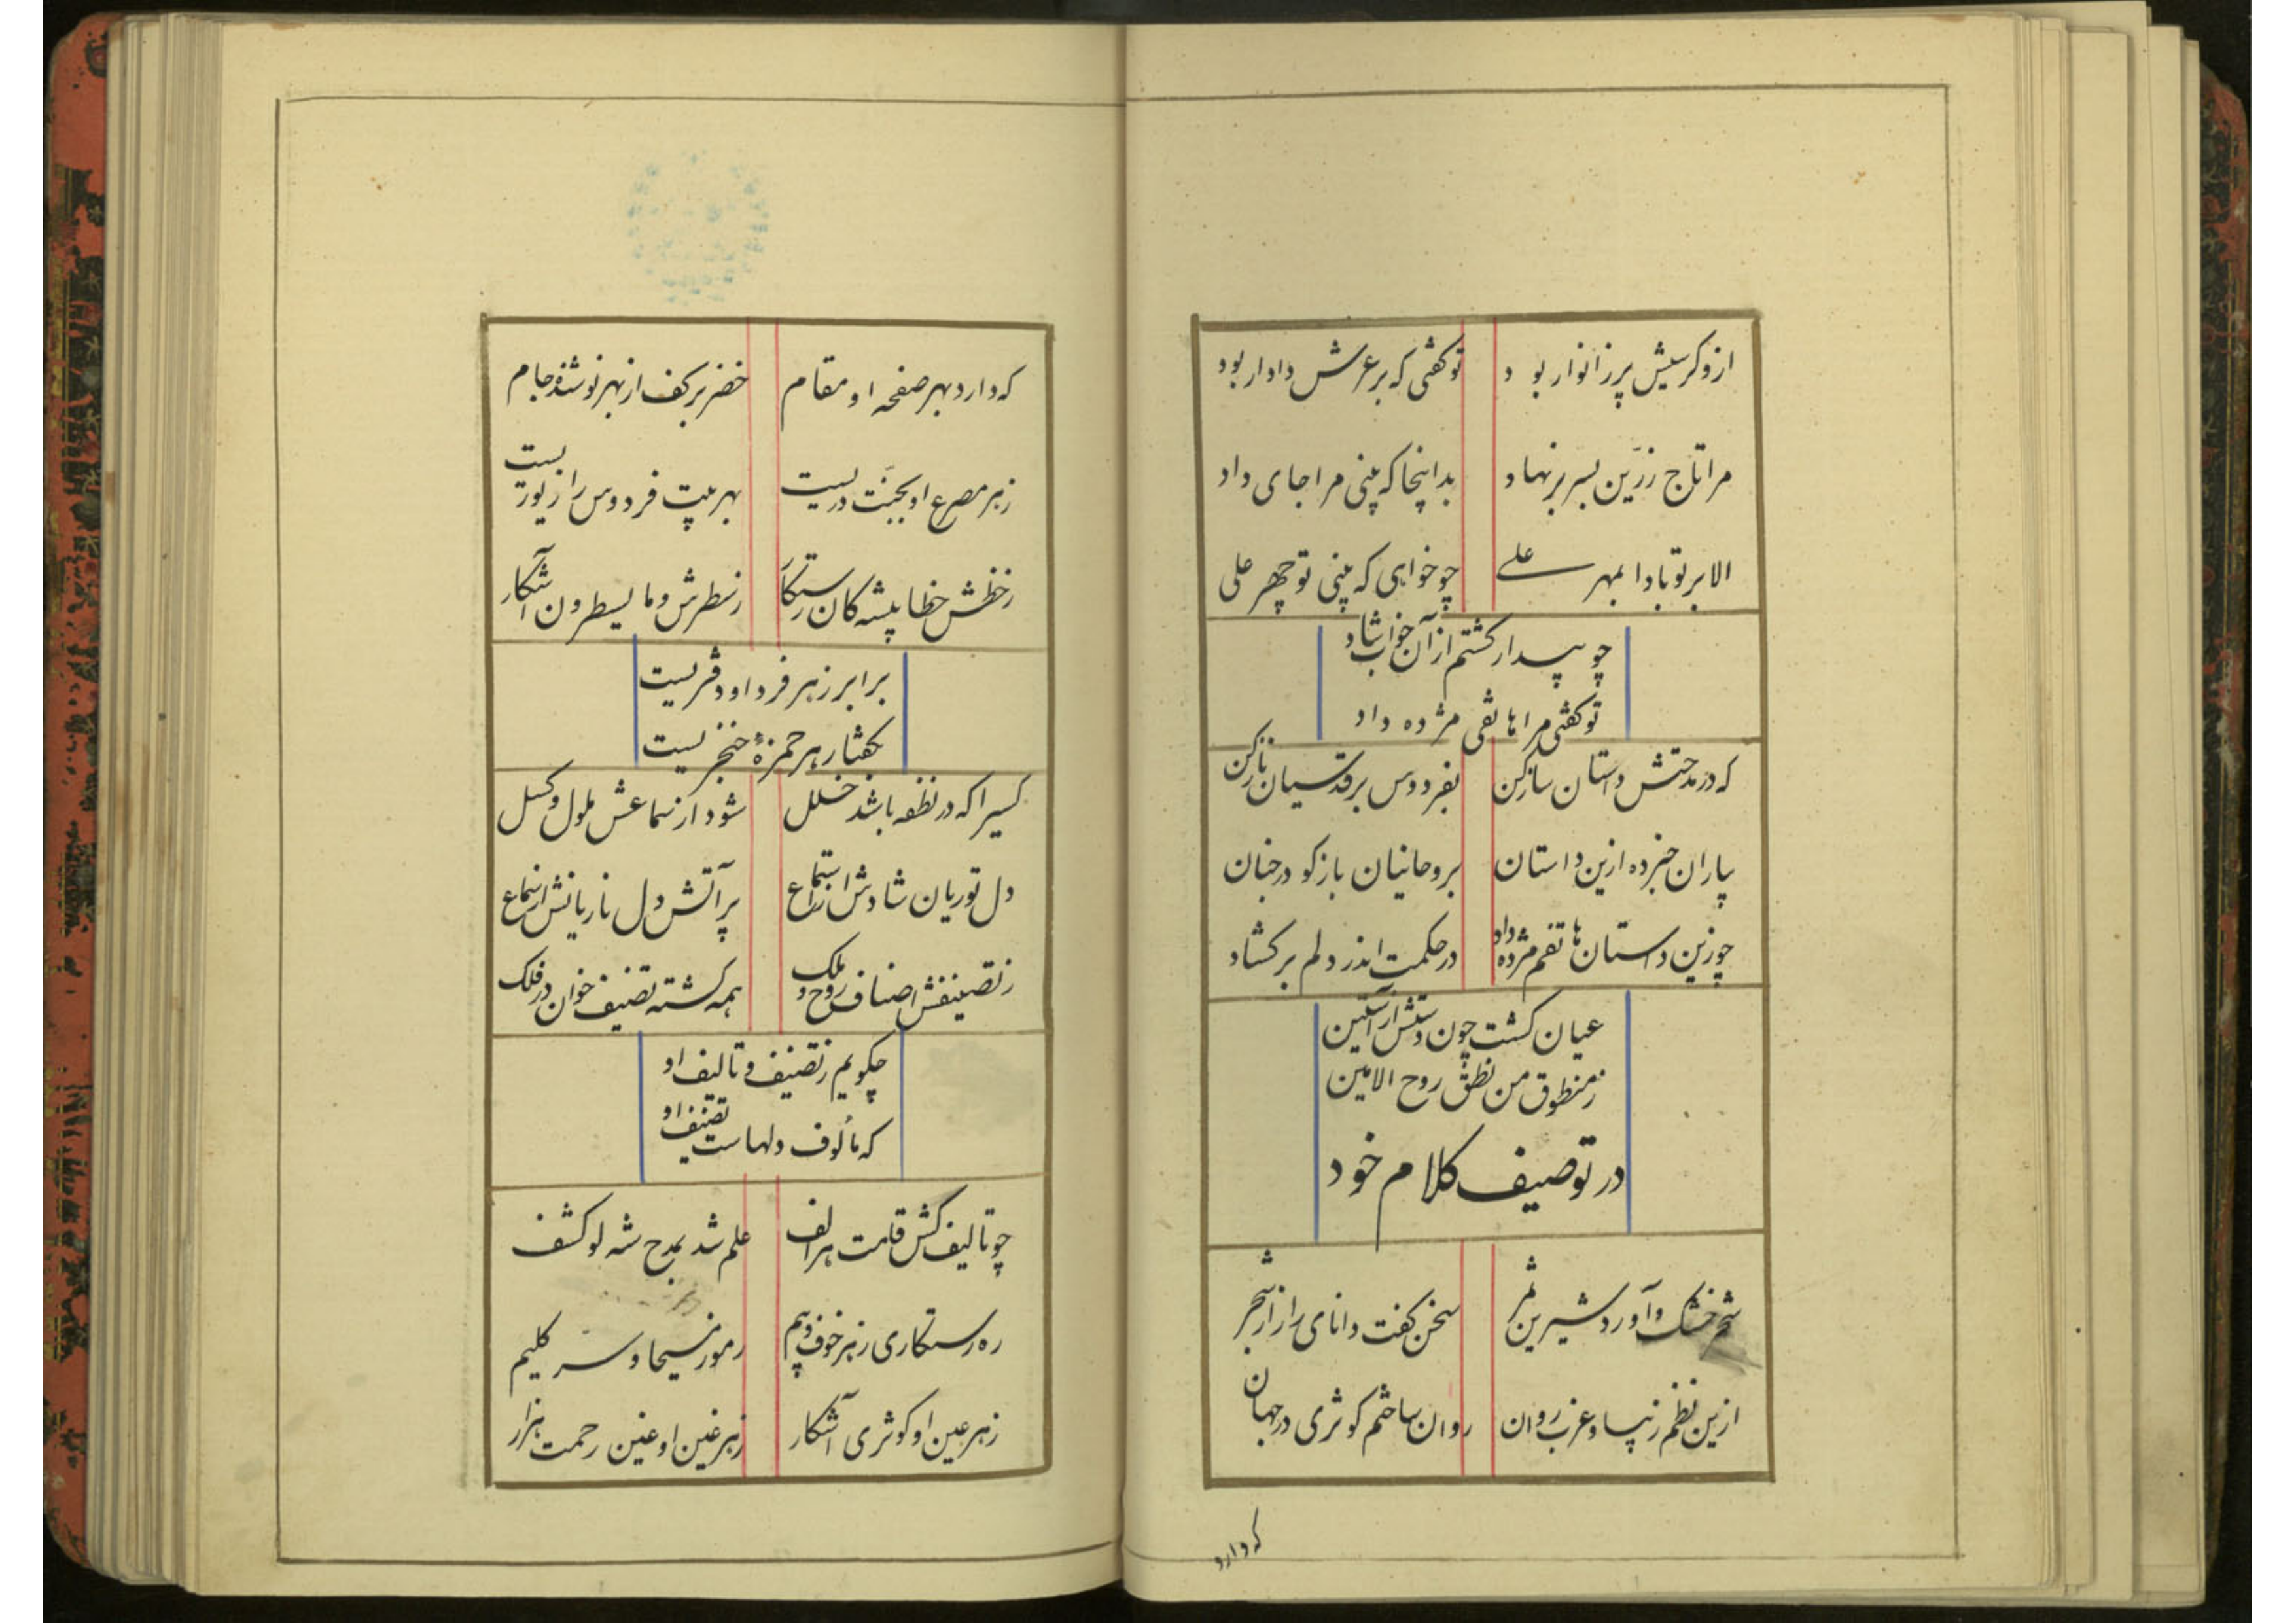 ازو کرسیش پر ز انوار بود توکفتی که بر عرش دادار بود
مرا تاج زرّین بسر بر نهاد بدانجا که بینی مرا جای داد
الا بر تو بادا بمهر علی چو خواهی که بینی تو چهر علی
چو بیدار کشتم از آن خواب شاد
توکفتی مرا هاتفی مژده داد
که در مدحتش داستان ساز کن بفردوس بر قدسیان ناز کن
بیاران خبر ده ازین داستان بروحانیان باز کو در جنان
چو زین داستان هاتفم مژده داد در حکمت اندر دلم برکشاد
عیان کشت چون دستش از آستین
ز منطوق من نطق روح الامین
در توصیف کلام خود
شجر خشک و آورد شیرین ثمر سخن کفت دانای راز از شجر
ازین نظم زیبا و عذب روان روان ساختم کوثری در جهان
که دارد
که دارد بهر صفحه او مقام خضر بر کف از بهر نوشنده جام
ز هر مصرع او بجنّت دریست بهر بیت فردوس را زیوریست
ز خطش خطا پیشه کان رستکار ز سطرش و ما یسطرون آشکار
برابر ز هر فرد او دفتریست
بکفتار هر حمزهٔ خنجریست
کسیرا که در نطفه باشد خلل شود از سماعش ملول و کسل
دل نوریان شادش از استماع پر آتش دل ناریانش از سماع
ز تصنیفش اصناف روح و ملک همه کشته تصنیف خوان در فلک
چکویم ز تصنیف و تالیف او
که مألوف دلهاست تصنیف او
چو تالیف کش قامت هر الف علم شد بمدح شه لو کشف
ره رستکاری ز هر خوف و بیم رموز مسیحا و سر کلیم
ز هر عین او کوثری آشکار ز هر غین او عین رحمت هزار